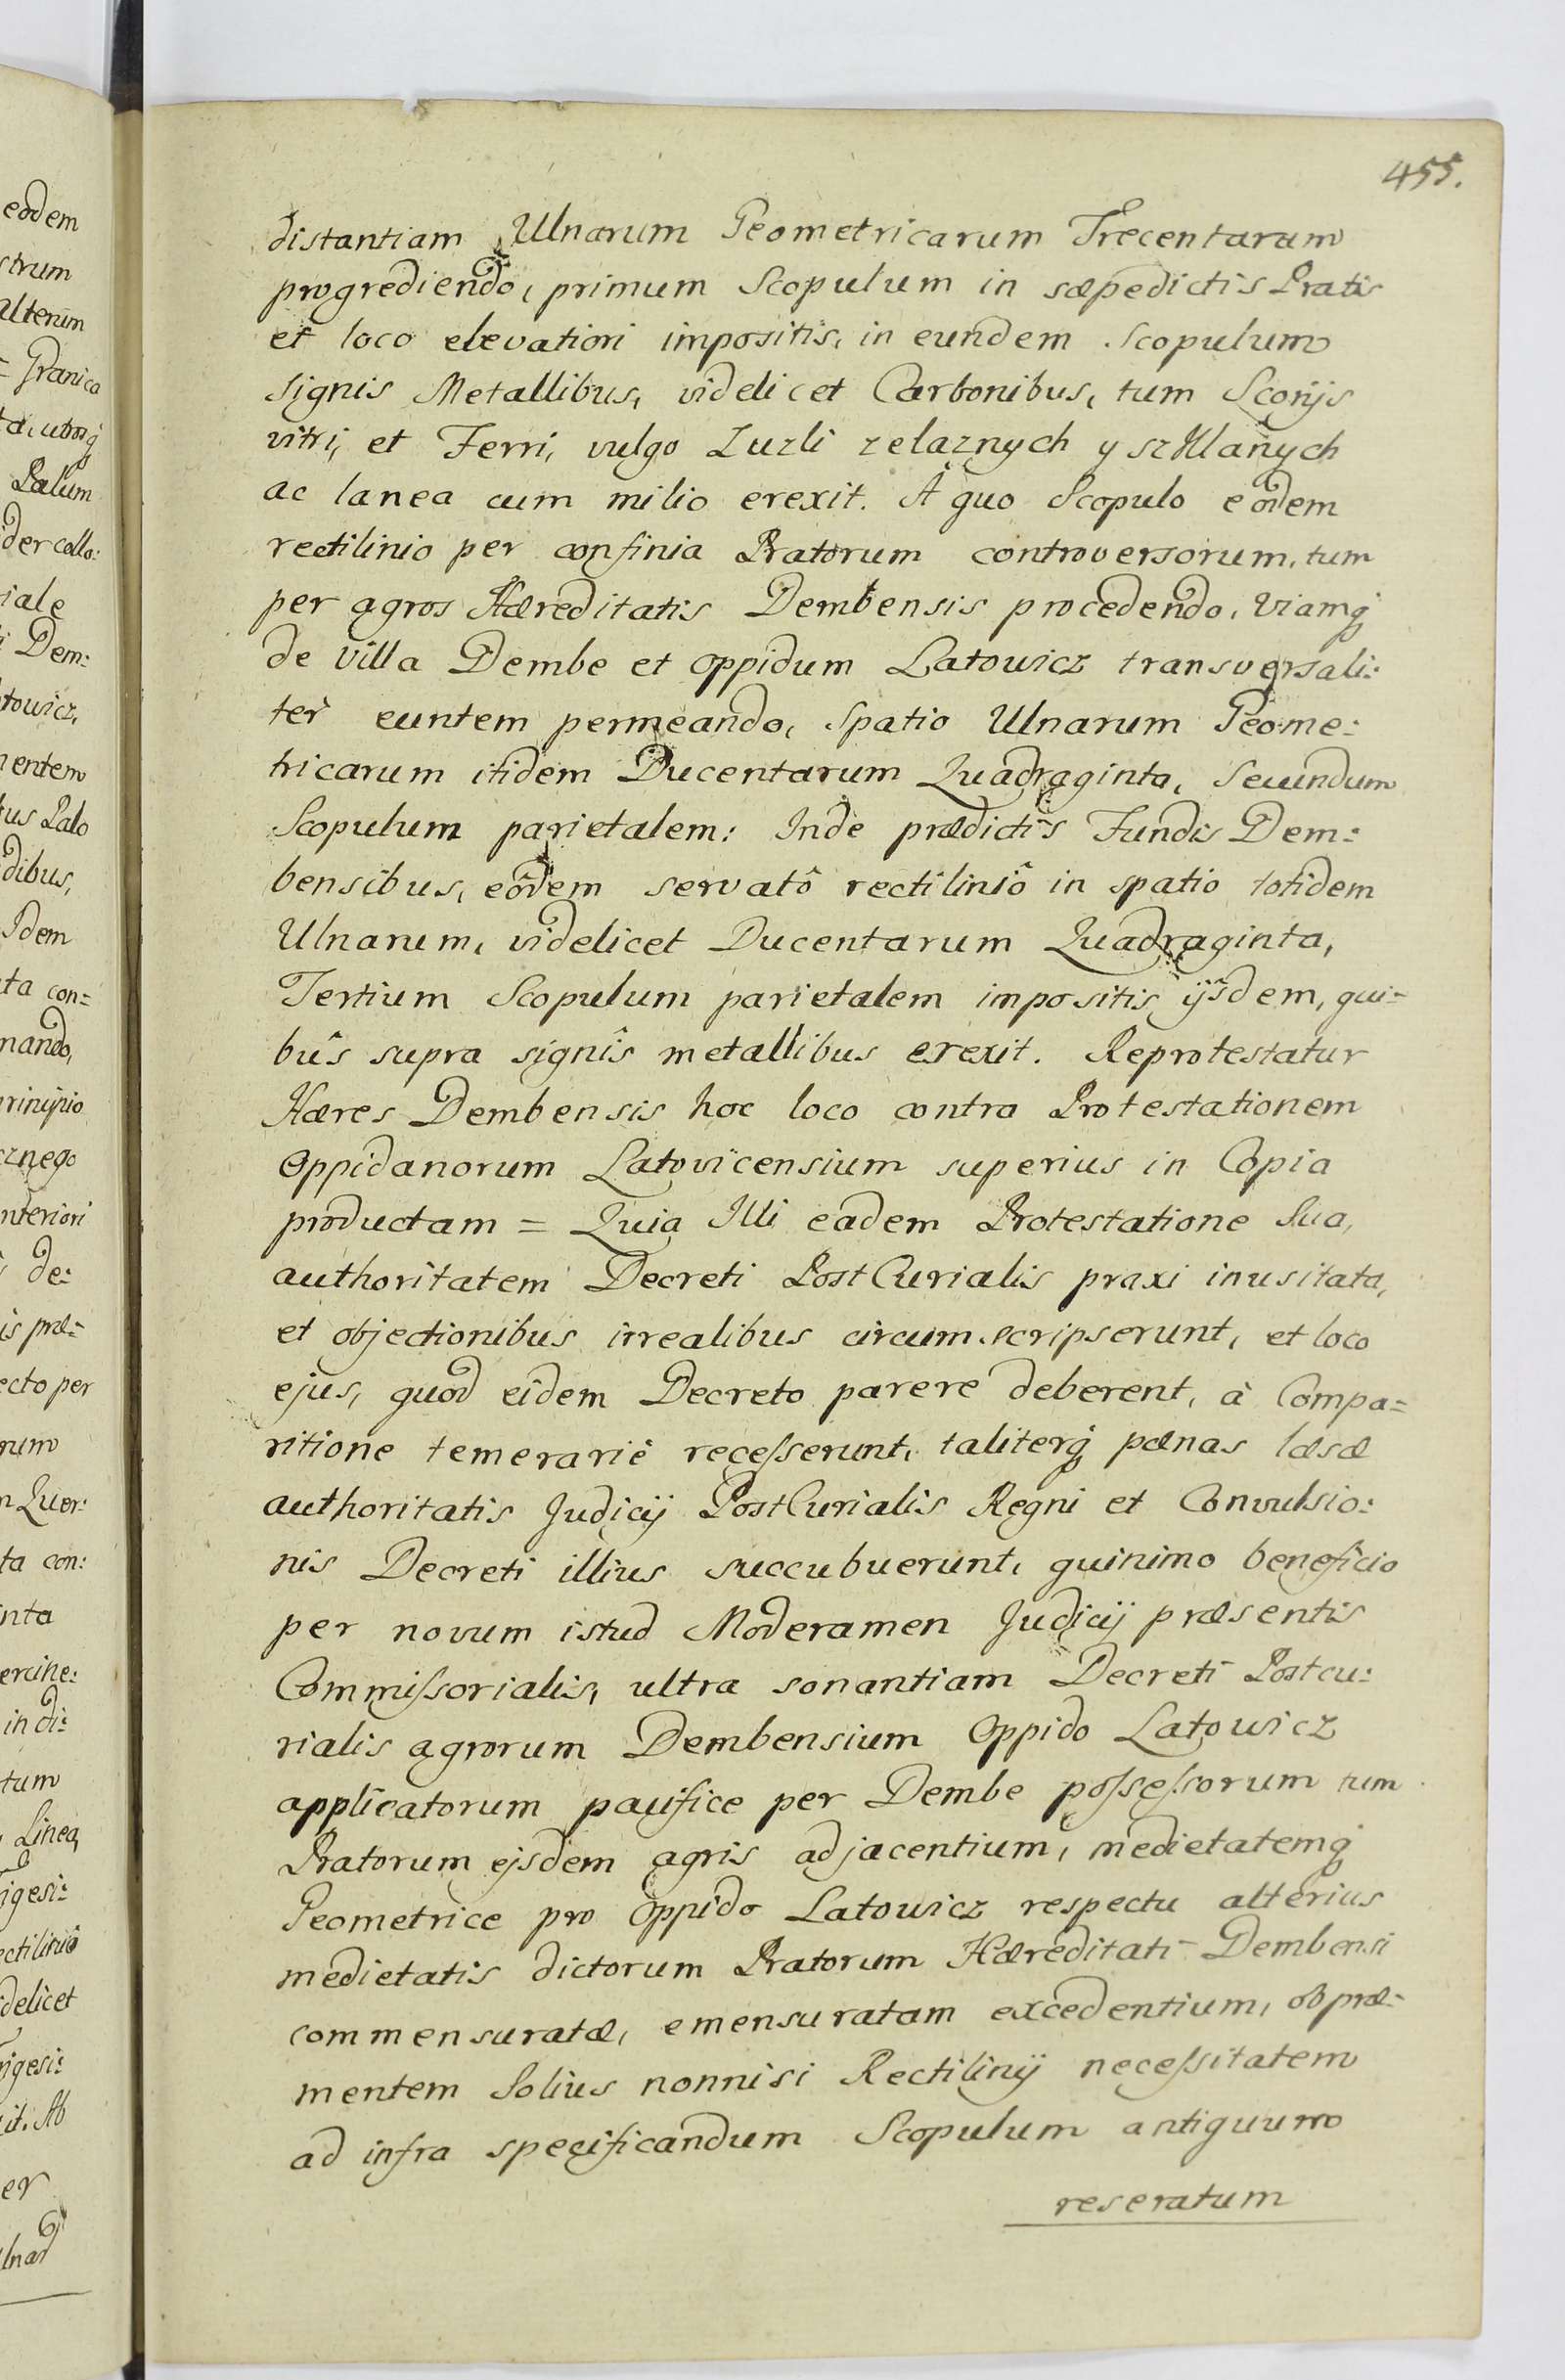 455.
distantiam Ulnarum Geometricarum Trecentarum
progrediendo, primum Scopulum in sæpedictis Pratis
et loco elevatiori impositis, in eundem Scopulum
signis Metallibus, videlicet Carbonibus, tum Scorijs
vitri, et Ferri, vulgo Zuzli zelaznych y szklanych
ac lanea cum milio erexit. A quo Scopulo eodem
rectilinio per confinia Pratorum controversorum, tum
per agros Hæreditatis Dembensis procedendo, Viamq́
de Villa Dembe et oppidum Latowicz transversali:
ter euntem permeando, Spatio Ulnarum Geome:
tricarum itidem Ducentarum Quadraginta, Secundum
Scopulum parietalem: Inde prædictis Fundis Dem:
bensibus, eôdem servatô rectiliniô in spatio totidem
Ulnarum, videlicet Ducentarum Quadraginta,
Tertium Scopulum parietalem impositis ijsdem, qui=
bûs supra signîs metallibus erexit. Reprotestatur
Hæres Dembensis hoc loco contra Protestationem
Oppidanorum Latovicensium superius in Copia
productam = Quia Illi eadem Protestatione Sua,
authoritatem Decreti PostCurialis praxi inusitata,
et objectionibus irrealibus circumscripserunt, et loco
ejus, quod eidem Decreto parere deberent, à Compa=
ritione temerariè recesserunt, taliterq́ pœnas læsæ
authoritatis Judicij PostCurialis Regni et Convulsio:
nis Decreti illius succubuerunt, quinimo beneficio
per novum istud Moderamen Judicij præsentis
Commissorialis, ultra sonantiam Decreti Postcu:
rialis agrorum Dembensium Oppido Latowicz
applicatorum pacifice per Dembe possessorum tum
Pratorum ejsdem agris adjacentium, medietatemq́
Geometrice pro Oppido Latowicz respectu alterius
medietatis dictorum Pratorum Hæreditati Dembensi
commensuratæ, emensuratam excedentium, ob præ=
mentem Solius nonnisi Rectilinij necessitatem
ad infra specificandum Scopulum antiquum
reseratum